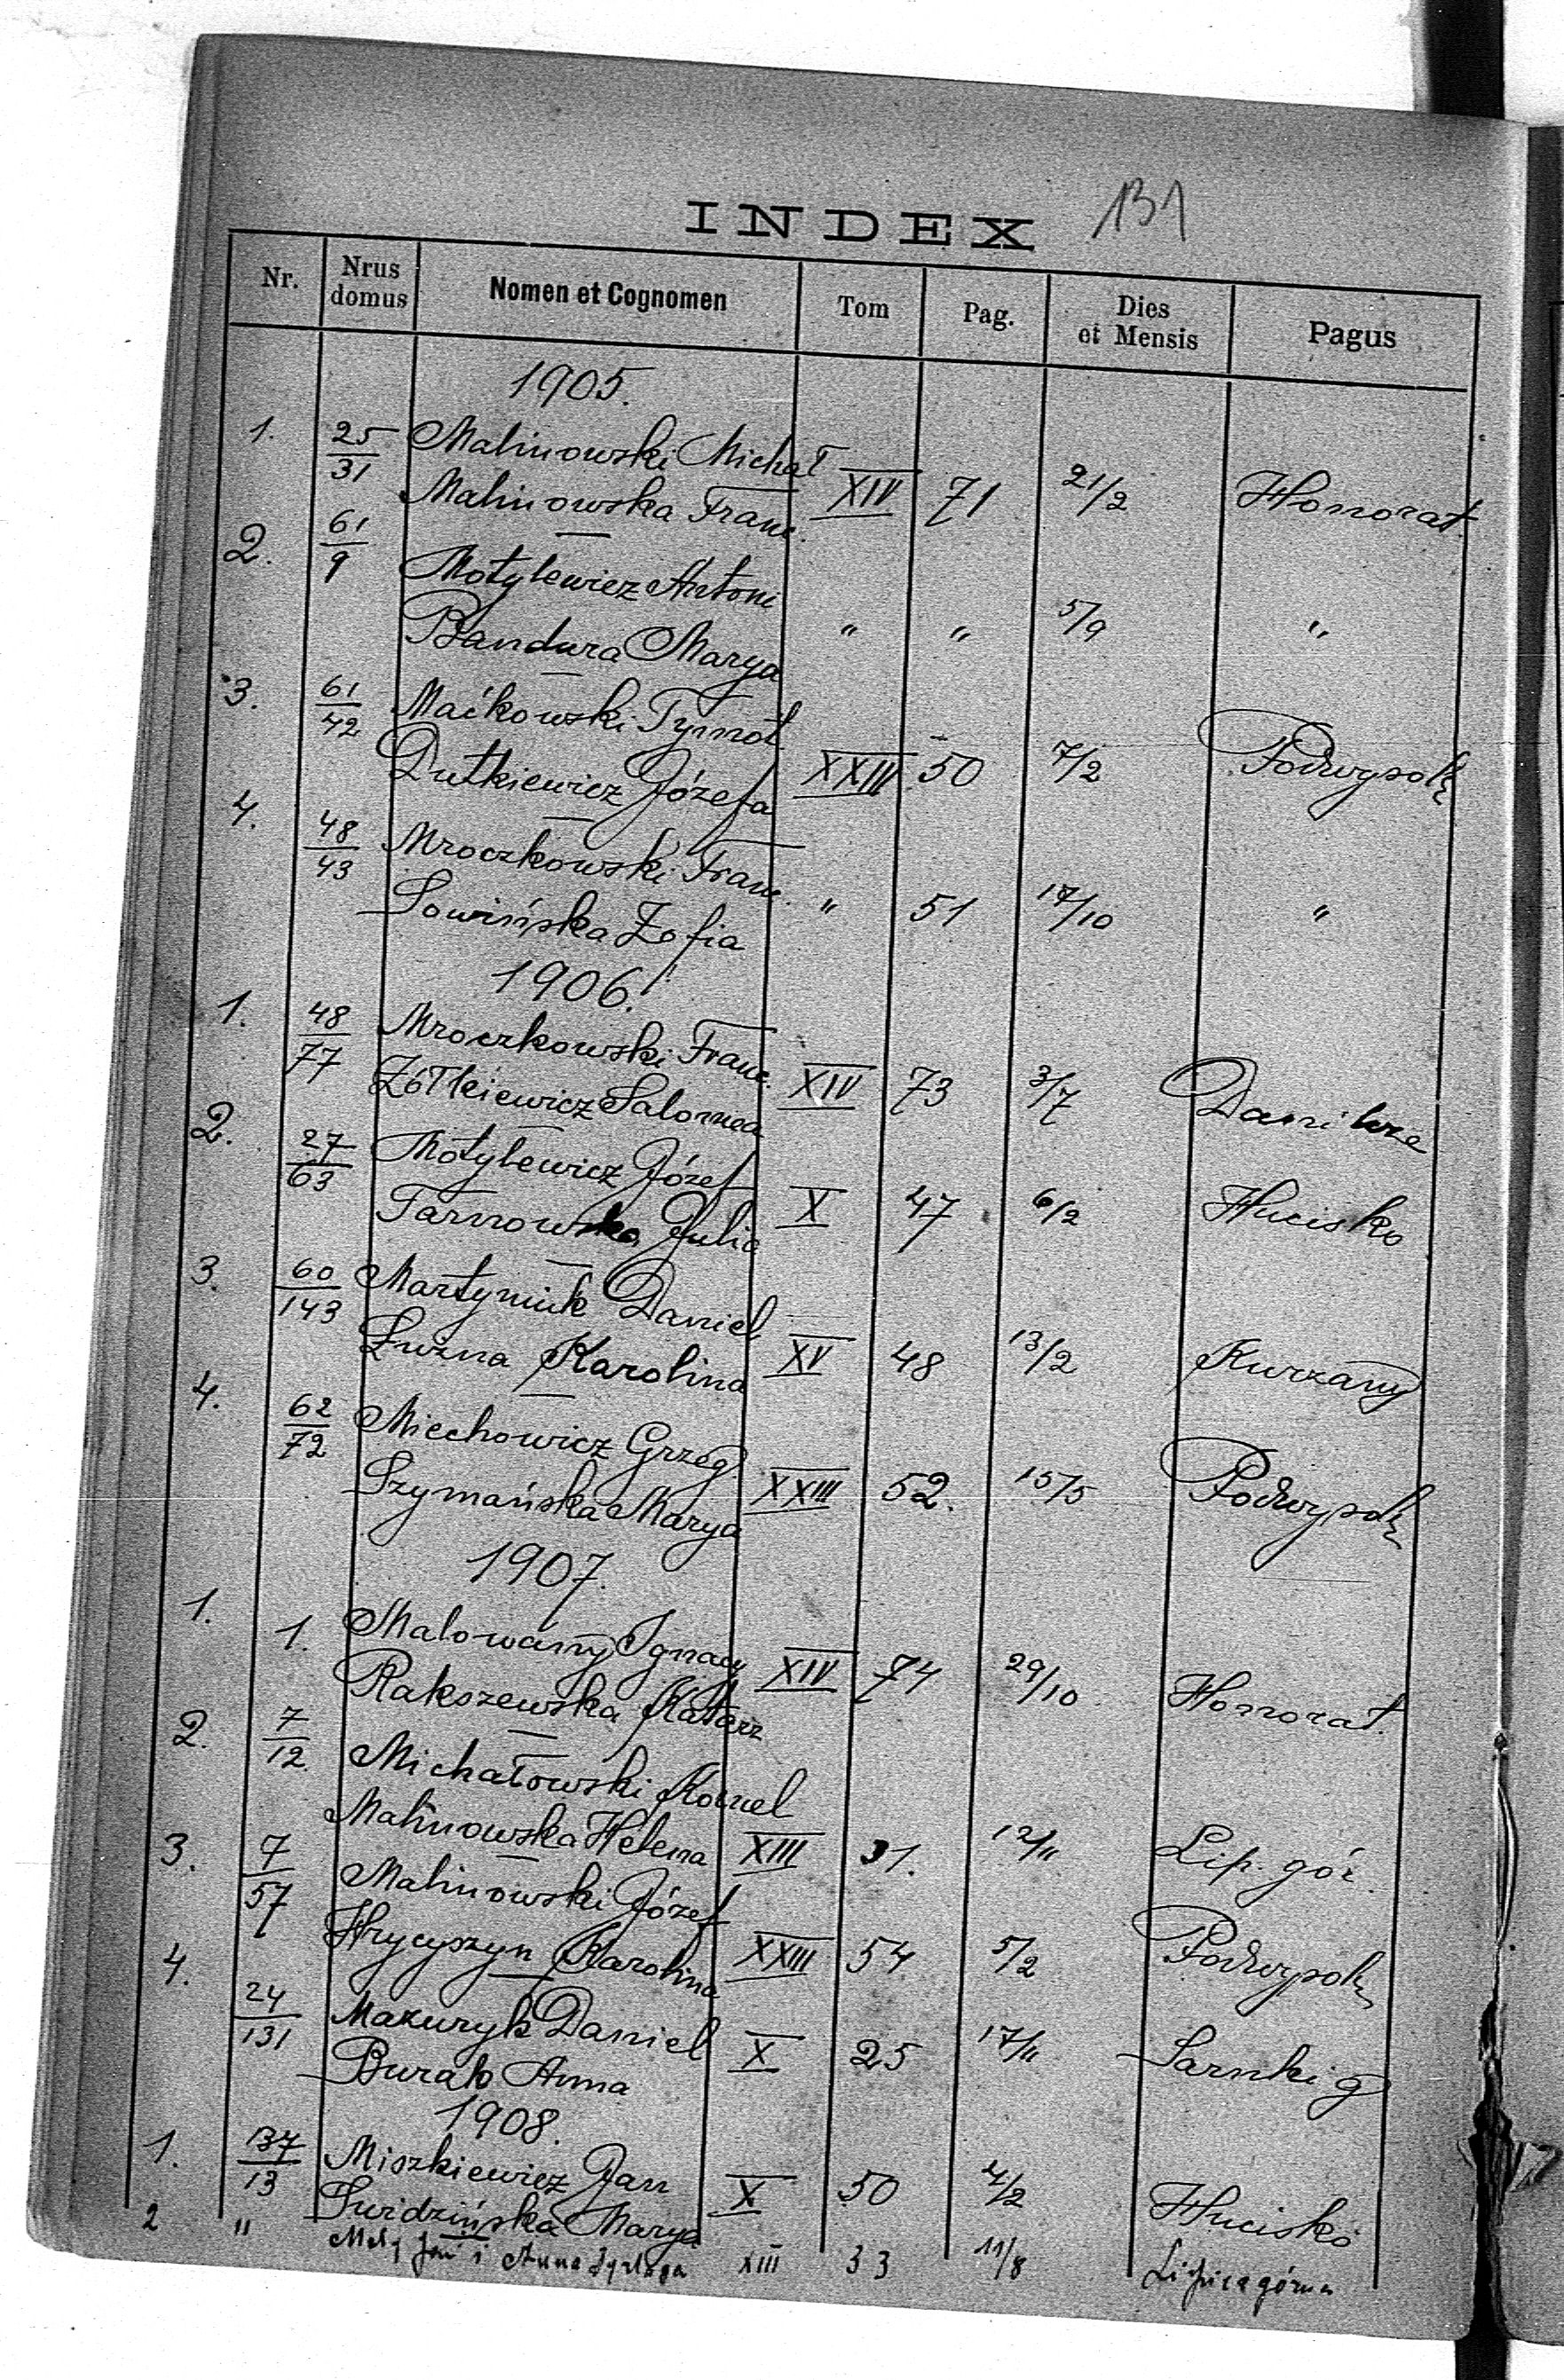 INDEX 131
Nr. Nrus domus Nomen et Cognomen Tom Pag. Dies et Mensis Pagus
1905.
1. 25/31 Malinowski Michał
Malinowska Franc. XIV 71 21/2 Honorat.
2. 61/9 Motylewicz Antoni
Bandura Marya " " 5/9 "
3. 61/42 Maćkowski Tymot.
Dutkiewicz Józefa XXIII 50 7/2 Podwysok
4. 48/43 Mroczkowski Franc.
Sowińska Zofia " 51 17/10 "
1906.
1. 48/77 Mroczkowski Franc.
Żółkiewicz Salomea XIV 73 3/7
2. 27/63 Motylewicz Józef
Tarnowska Julia X 47 6/2 Hucisko
3. 60/143 Martyniuk Daniel
Karolina XV 48 13/2 Kurzany
4. 62/72 Miechowicz Grzeg.
Szymańska Marya XXIII 52. 15/5 Podwysok
1907.
1. 1. Malowany Ignacy
Rakszewska Katarz XIV 74 29/10 Honorat.
2. 7/12. Michałowski Kornel
Malinowska Helena XIII 31. 12/11 Lip. gór.
3. 7/57 Malinowski Józef
Hrycyszyn Karolina XXIII 54 5/2 Podwysok
4. 24/131 Mazuryk Daniel
Burak Anna X 25 17/11 Sarnki g
1908.
1. 137/13 Miszkiewicz Jan
Swidzińska Marya X 50 4/2 Hucisko
2 " Jan i Anna XIII 33 11/8 Lipica górna